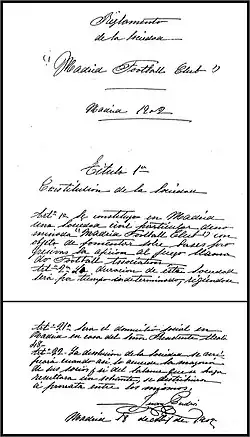 Reglamento
de la Sociedad
"Madrid Football Club"
Madrid 1902
Título 1º
Constitución de la Sociedad
Art.º 1º Se constituye en Madrid
una sociedad civil particular deno
minada "Madrid Football Club" con
objeto de fomentar sobre bases pro
la afición al juego llama
do Football Association
Art.º 2º La duración de esta Sociedad
será por tiempo indeterminado,
Art.º 21º Será el domicilio social en
Madrid en casa del Señor
48.
Art.º 22. La disolución de la Sociedad se veri
ficará cuando así lo acuerde la mayoría
de sus socios y si del balance que se haga
resultara un sobrante, se distribuirá
a prorrata entre los mismos.
Juan Padrós
Madrid 18 de 1902